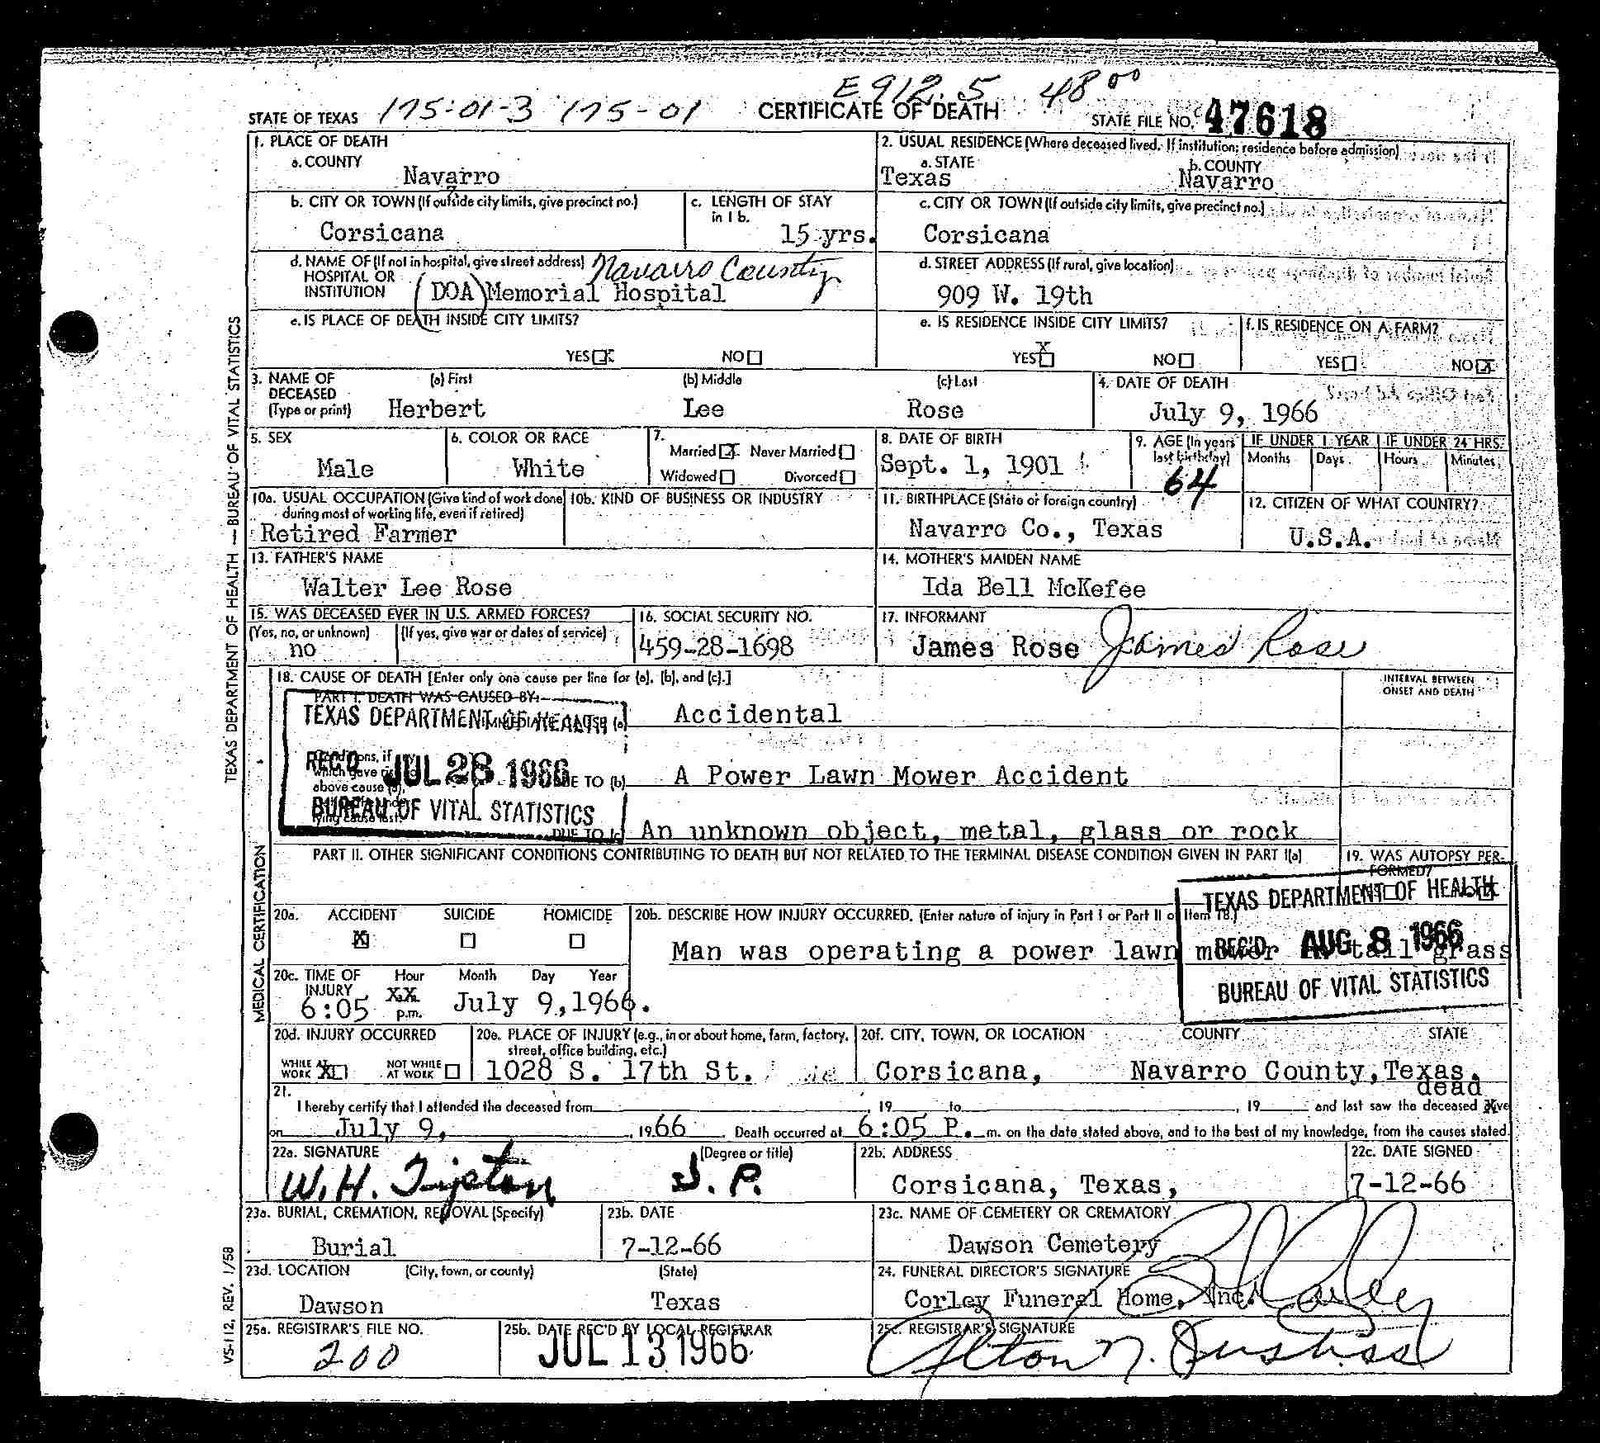 E912.5 48.00
STATE OF TEXAS 175-01-3 175-01 CERTIFICATE OF DEATH STATE FILE NO. 47618
1. PLACE OF DEATH
a. COUNTY
Navarro
2. USUAL RESIDENCE (Where deceased lived. If institution: residence before admission)
a. STATE b. COUNTY
Texas Navarro
b. CITY OR TOWN (If outside city limits, give precinct no.)
Corsicana
c. LENGTH OF STAY
in 1 b.
15 yrs.
c. CITY OR TOWN (If outside city limits, give precinct no.)
Corsicana
d. NAME OF (If not in hospital, give street address)
HOSPITAL OR
INSTITUTION
Navarro County
(DOA) Memorial Hospital
d. STREET ADDRESS (If rural, give location)
909 W. 19th
e. IS PLACE OF DEATH INSIDE CITY LIMITS?
YES X NO
e. IS RESIDENCE INSIDE CITY LIMITS?
YES X NO
f. IS RESIDENCE ON A FARM?
YES NO X
3. NAME OF
DECEASED
(Type or print)
(a) First (b) Middle (c) Last
Herbert Lee Rose
4. DATE OF DEATH
July 9, 1966
5. SEX
Male
6. COLOR OR RACE
White
7.
Married X Never Married
Widowed Divorced
8. DATE OF BIRTH
Sept. 1, 1901
9. AGE (In years
last birthday)
64
IF UNDER 1 YEAR IF UNDER 24 HRS.
Months Days Hours Minutes
10a. USUAL OCCUPATION (Give kind of work done
during most of working life, even if retired)
Retired Farmer
10b. KIND OF BUSINESS OR INDUSTRY
11. BIRTHPLACE (State or foreign country)
Navarro Co., Texas
12. CITIZEN OF WHAT COUNTRY?
U.S.A.
13. FATHER'S NAME
Walter Lee Rose
14. MOTHER'S MAIDEN NAME
Ida Bell McKefee
15. WAS DECEASED EVER IN U.S. ARMED FORCES?
(Yes, no, or unknown) (If yes, give war or dates of service)
no
16. SOCIAL SECURITY NO.
459-28-1698
17. INFORMANT
James Rose James Rose
18. CAUSE OF DEATH [Enter only one cause per line for (a), (b), and (c).]
INTERVAL BETWEEN
ONSET AND DEATH
PART I. DEATH WAS CAUSED BY:
IMMEDIATE CAUSE (a) Accidental
TEXAS DEPARTMENT OF HEALTH
REC'D JUL 28 1966
BUREAU OF VITAL STATISTICS
Conditions, if
which gave
above cause (a),
DUE TO (b) A Power Lawn Mower Accident
DUE TO (c) An unknown object, metal, glass or rock
PART II. OTHER SIGNIFICANT CONDITIONS CONTRIBUTING TO DEATH BUT NOT RELATED TO THE TERMINAL DISEASE CONDITION GIVEN IN PART I(a)
19. WAS AUTOPSY PER-
FORMED?
TEXAS DEPARTMENT OF HEALTH
REC'D AUG 8 1966
BUREAU OF VITAL STATISTICS
20a. ACCIDENT SUICIDE HOMICIDE
X
20b. DESCRIBE HOW INJURY OCCURRED. (Enter nature of injury in Part I or Part II of Item 18.)
Man was operating a power lawn mower in tall grass
20c. TIME OF
INJURY
Hour Month Day Year
6:05 p.m. July 9,1966.
20d. INJURY OCCURRED
WHILE AT
WORK X
NOT WHILE
AT WORK
20e. PLACE OF INJURY (e.g., in or about home, farm, factory,
street, office building, etc.)
1028 S. 17th St.
20f. CITY, TOWN, OR LOCATION COUNTY STATE
Corsicana, Navarro County, Texas.
21.
dead
I hereby certify that I attended the deceased from , 19 to , 19 and last saw the deceased alive
on July 9, , 1966 Death occurred at 6:05 P. m. on the date stated above, and to the best of my knowledge, from the causes stated.
22a. SIGNATURE (Degree or title)
W.H. Tipton J. P.
22b. ADDRESS
Corsicana, Texas,
22c. DATE SIGNED
7-12-66
23a. BURIAL, CREMATION, REMOVAL (Specify)
Burial
23b. DATE
7-12-66
23c. NAME OF CEMETERY OR CREMATORY
Dawson Cemetery
23d. LOCATION (City, town, or county) (State)
Dawson Texas
24. FUNERAL DIRECTOR'S SIGNATURE
Corley Funeral Home, Inc.
25a. REGISTRAR'S FILE NO.
200
25b. DATE REC'D BY LOCAL REGISTRAR
JUL 13 1966
25c. REGISTRAR'S SIGNATURE
Alton N. Justiss
TEXAS DEPARTMENT OF HEALTH — BUREAU OF VITAL STATISTICS
MEDICAL CERTIFICATION
VS-112, REV. 1/58